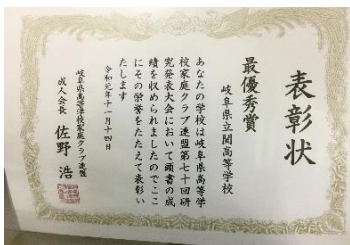 表彰状
最優秀賞
岐阜県立関高等学校
あなたの学校は岐阜県高等学
校家庭クラブ連盟第七十回研
究発表大会において頭書の成
績を収められましたのでここ
にその栄誉をたたえて表彰い
たします
令和元年十一月十四日
岐阜県高等学校家庭クラブ連盟
成人会長 佐野浩